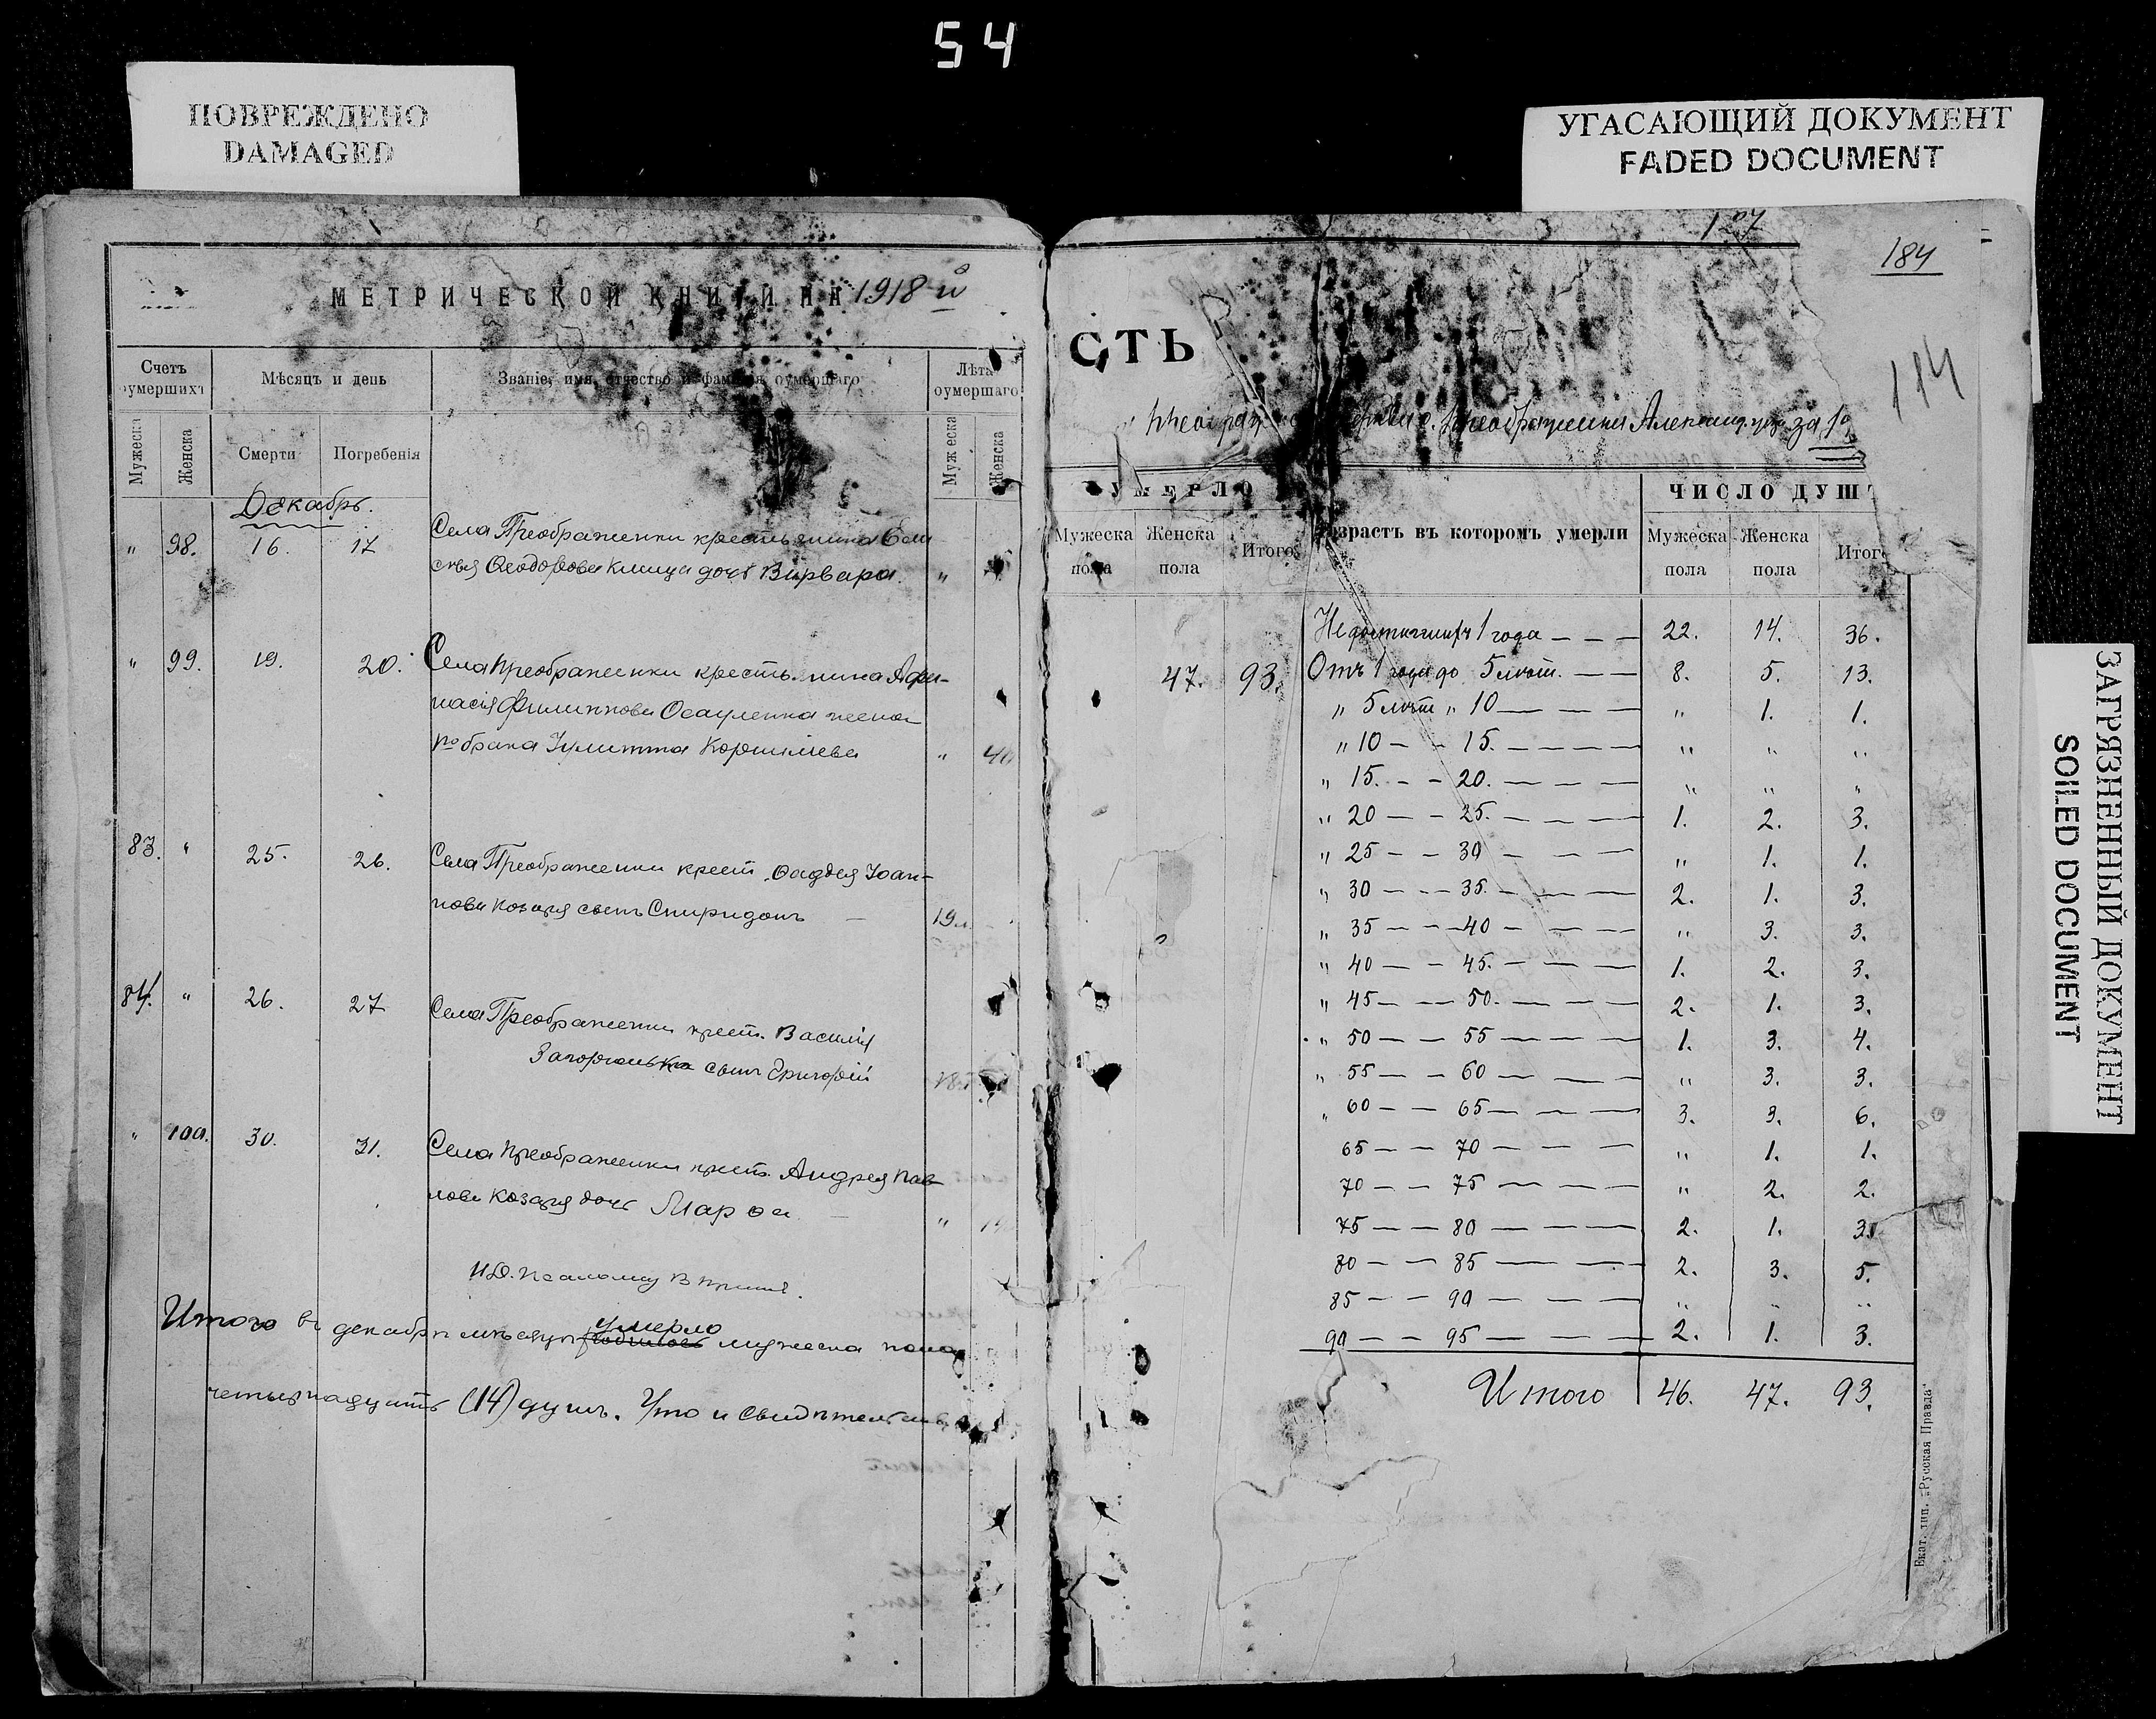 54
ПОВРЕЖДЕНО
DAMAGED
УГАСАЮЩИЙ ДОКУМЕНТ
FADED DOCUMENT
ЗАГРЯЗНЕННЫЙ ДОКУМЕНТ
SOILED DOCUMENT
МЕТРИЧЕСКОЙ КНИГИ НА 1918 й
Счетъ оумершихъ
Мѣсяцъ и день
Званіе, имя, отчество и фамилія оумершаго
Лѣта оумершаго
Мужеска Женска Смерти Погребенія Мужеска Женска
Декабрь.
" 98. 16. 17 Села Преображенки крестьянина
Ѳеодорова Клища дочь Варвара. "
" 99. 19. 20. Села Преображенки крестьянина Афа-
насія Филиппова Осауленка жена
по брака Іулитта Корнилиева " 40
83. " 25. 26. Села Преображенки крест. Ѳаддея Іоан-
нова Козаря сынъ Спиридонъ — 19 л.
84. " 26. 27 Села Преображенки крест. Василія
сынъ Григорій
" 100. 30. 31. Села Преображенки крест. Андрея Пав-
лова Козаря дочь Марѳа "
Итого въ декабрѣ мѣсяцѣ умерло мужеска пола
четырнадцать (14) душъ. Что и
184
184
СТЬ
Преображенки Александр. за
УМЕРЛО
ЧИСЛО ДУШЪ
Мужеска пола Женска пола Итого Возрастъ въ которомъ умерли Мужеска пола Женска пола Итого
Недостигшихъ 1 года — — — 22. 14. 36.
47. 93. Отъ 1 года до 5 лѣтъ. — — 8. 5. 13.
" 5 лѣтъ " 10 — — — " 1. 1.
" 10 — — 15. — — — — " " "
" 15. — — 20. — — — — " " "
" 20 — — 25. — — — — 1. 2. 3.
" 25 — — 30 — — — " 1. 1.
" 30 — — 35. — — — — 2. 1. 3.
" 35 — — 40 — — — — " 3. 3.
" 40 — — 45. — — — — 1. 2. 3.
" 45 — — 50. — — — 2. 1. 3.
" 50 — — 55 — — — — 1. 3. 4.
" 55 — — 60 — — — " 3. 3.
" 60 — — 65 — — — — 3. 3. 6.
65 — — 70 — — — " 1. 1.
70 — — 75 — — — — " 2. 2.
75 — — 80 — — — — 2. 1. 3.
80 — — 85 — — — 2. 3. 5.
85 — — 90 — — — — " " "
90 — — 95 — — — — 2. 1. 3.
Итого 46. 47. 93.
Екат. тип. „Русская Правда"